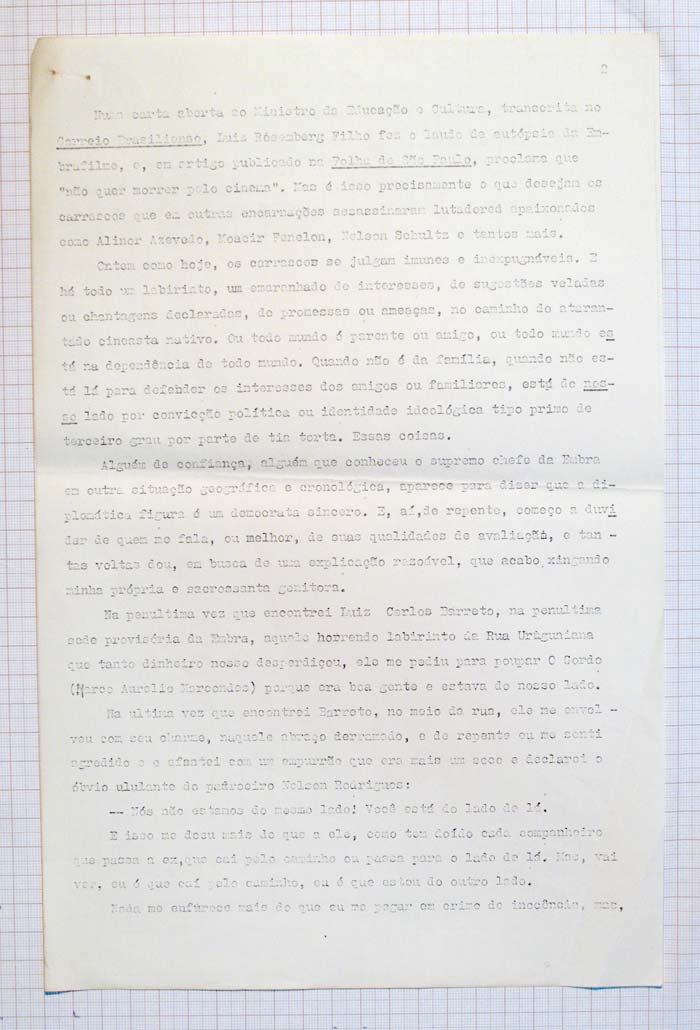 2
Numa carta aberta ao Ministro da Educação e Cultura, transcrita no
Correio Brasiliense, Luiz Rosemberg Filho fez o laudo de autópsia da Em-
brafilme, e, em artigo publicado na Folha de São Paulo, proclama que
"não quer morrer pelo cinema". Mas é isso precisamente o que desejam os
carrascos que em outras encarnações assassinaram lutadored apaixonados
como Alinor Azevedo, Moacir Fenelon, Nelson Schultz e tantos mais.
Ontem como hoje, os carrascos se julgam imunes e inexpugnáveis. E
há todo um labirinto, um emaranhado de interesses, de sugestões veladas
ou chantagens declaradas, de promessas ou ameaças, no caminho do ataran-
tado cineasta nativo. Ou todo mundo é parente ou amigo, ou todo mundo es
tá na dependência de todo mundo. Quando não é da família, quando não es-
tá lá para defehder os interesses dos amigos ou familiares, está do nos-
so lado por convicção política ou identidade ideológica tipo primo de
terceiro grau por parte de tia torta. Essas coisas.
Alguém de confiança, alguém que conheceu o supremo chefe da Embra
em outra situação geográfica e cronológica, aparece para dizer que a di-
plomática figura é um democrata sincero. E, aí,de repente, começo a duvi
dar de quem me fala, ou melhor, de suas qualidades de avaliação, e tan -
tas voltas dou, em busca de uma explicação razoável, que acabo xingando
minha própria e sacrossanta genitora.
Na penultima vez que encontrei Luiz Carlos Barreto, na penultima
sede provisória da Embra, aquele horrendo labirinto da Rua Uruguaiana
que tanto dinheiro nosso desperdiçou, ele me pediu para poupar O Gordo
(Marco Aurelio Marcondes) porque era boa gente e estava do nosso lado.
Na ultima vez que encontrei Barreto, no meio da rua, ele me envol -
veu com seu charme, naquele abraço derramado, e de repente eu me senti
agredido e o afastei com um empurrão que era mais um soco e declarei o
óbvio ululante do padroeiro Nelson Rodrigues:
-- Nós não estamos do mesmo lado! Você está do lado de lá.
E isso me doeu mais do que a ele, como tem doído cada companheiro
que passa a ex,que cai pelo caminho ou passa para o lado de lá. Mas, vai
ver, eu é que caí pelo caminho, eu é que estou do outro lado.
Nada me enfurece mais do que eu me pegar em crime de inocência, mas,